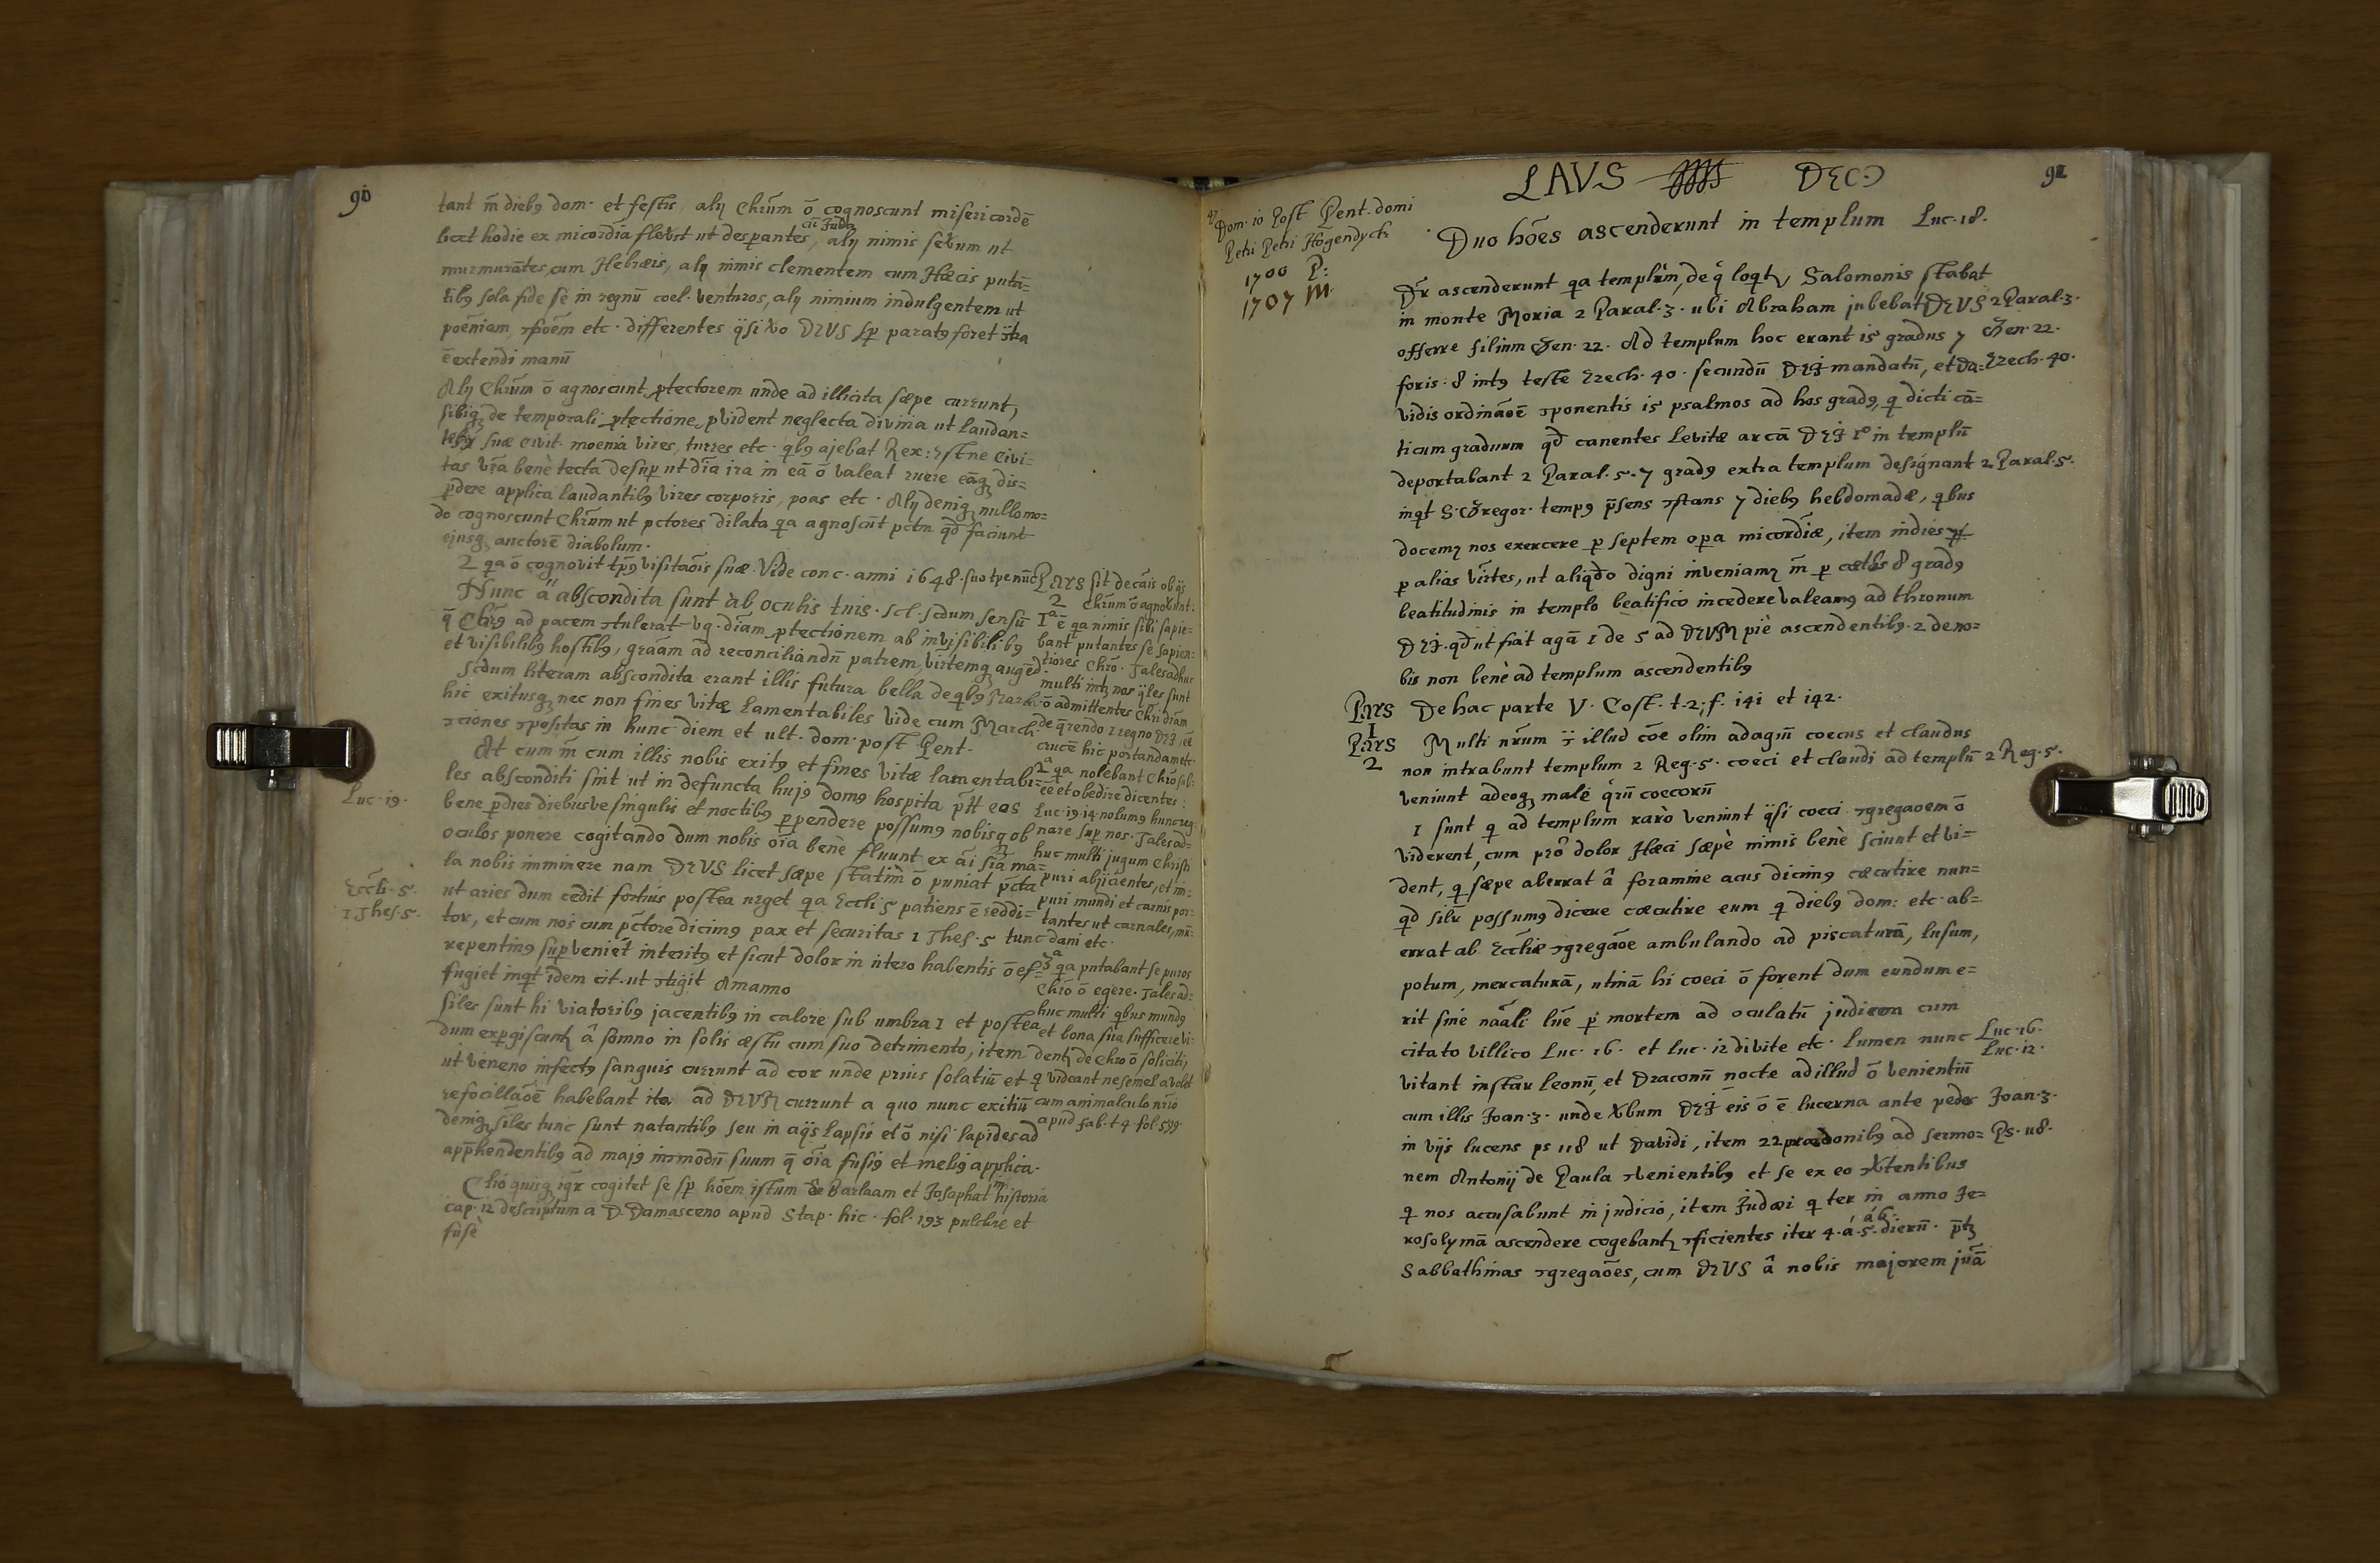 90
tant m̄ diebꝯ dom. et festis, alij Chrūm ō cognoscunt misericordē
cū Juda
licet hodie ex micordia flevit ut desperantes, alij nimis sevum ut
murmurātes cum Hebræis, alij nimis clementem cum Hæcis putā=
tibꝯ sola fide se in regnū coel. venturos, alij nimium indulgentem ut
poēniam, etc. differentes q̈si DEUS sp̄ paratꝯ foret
ē extendi manū
Alij Chrūm ō agnoscunt ꝓtectorem unde ad illicita sæpe currunt,
sibiqꝫ de temporali ꝓtectione ꝓvident neglecta divina ut laudan=
suæ civit. moenia vires, turres etc. qbꝯ ajebat Rex: Estne Civi=
tas vrā benè tecta desup ut dīa ira in eā ō valeat ruere eāqꝫ dis=
perdere applica laudantibꝯ vires corporis, poas etc. Alij deniqꝫ nullomo=
do cognoscunt Chrūm ut pctores dilata qa agnoscūt pctm qd̄ faciunt
ejusqꝫ auctorē diabolum.
2 qa ō cognovit tp̄ꝯ visitaōis suæ. Vide conc. anni 1648. suo tpe
Nunc āu abscondita sunt ab oculis tuis. scl. scdum sensū
q̄ Chrꝯ ad pacem attulerat vg. diām ꝓtectionem ab invisibilibꝯ
et visibilibꝯ hostibꝯ, grāam ad reconciliandū patrem, virtemqꝫ augēd
Scdum literam abscondita erant illis futura bella de qbꝯ March.
hic exitusqꝫ nec non fines vitæ lamentabiles vide cum March.
ꝯciones ꝯpositas in hunc diem et ult. dom. post Pent.
At cum m̄ cum illis nobis exitꝯ et fines vitæ lamentabi=
les absconditi sint ut in defuncta hujꝯ domꝯ hospita p̄tt eos
Luc. 19.
bene p dies diebusve singulis et noctibꝯ ꝑpendere possumꝯ nobisqꝫ ob
oculos ponere cogitando dum nobis oīa bene fluunt ex āi siā ma=
la nobis imminere nam DEUS licet sæpe statim ō puniat p̄cta
Eccli. 5.
ut aries dum cedit fortius postea urget qa Eccli 5 patiens ē reddi=
1 Thes. 5.
tor, et cum nos cum p̄ctore dicimꝯ pax et securitas 1 Thes. 5 tunc
repentinꝯ supveniet interitꝯ et sicut dolor in utero habentis ō ef=
fugiet inqt idem cit. ut ꝯtigit Amanno
Siles sunt hi viatoribꝯ jacentibꝯ in calore sub umbra 1 et postea
dum expgiscunt à somno in solis æstu cum suo detrimento, item
ut veneno infectꝯ sanguis currunt ad cor unde prius solatiū et
refocillāoē habebant ita ad DEUM currunt a quo nunc exitiū
deniqꝫ siles tunc sunt natantibꝯ seu in aqis lapsis et ō nisi lapides ad
app̄hendentibꝯ ad majꝯ incmodū suum q̄ oīa fusiꝯ et meliꝯ applica.
Ctio quisqꝫ igr cogitet se sp̄ hōem istum de Barlaam et Josaphat historia
cap. 12 descriptum a D. Damasceno apud Stap. hic. fol. 193 pulchre et
fusè
Pars
2
sit decāis ob qs
Chrūm ō agnovunt.
1ᵃ ē qa nimis sibi sapie=
bant putantes se sapien=
tiores Chrō. Tales adhuc
multi int nos q̈les sunt
ō admittentes Chri diām
de q̄rendo regno DEI
crucē hic portandam etc.
2ᵃ qa nolebant Chrō sub=
ēē et obedire dicentes:
Luc. 19. 14. nolumꝯ hunc reg=
nare sup nos. Tales ad=
huc multi jugum Christi
puri abjicientes, et im=
puri mundi et carnis por=
tantes ut carnales, mū=
dani etc.
3ᵃ qa putabant se puros
Chrō ō egere. Tales ad=
huc multi qbus mundꝯ
et bona sua sufficere vi=
dentꝫ de Chro ō soliciti,
q videant ne semel avolet
cum animalculo nrīo
apud Fab. t 4 fol. 599
LAVS DEO
91
47
Dom. 10 Post Pent. domi
Petri Petri Hogendyck
1700 P:
1707 M.
Duo hōes ascenderunt in templum Luc. 18.
Dr̄ ascenderunt qa templum, de q̊ loqtꝫ Salomonis stabat
in monte Moria 2 Paral. 3. ubi Abraham jubebat DEUS 2 Paral. 3.
offerre filium Gen. 22. Ad templum hoc erant 15 gradus 7 Gen. 22.
foris: 8 intꝯ teste Ezech. 40. secundū DEI mandatū, et Da= Ezech. 40.
vidis ordināoē ꝯponentis 15 psalmos ad hos gradꝯ, q dicti cā=
ticum graduum qd̄ canentes Levitæ arcā DEI 1º in templū
deportabant 2 Paral. 5. 7 gradꝯ extra templum designant 2 Paral. 5.
inqt S. Gregor. tempꝯ p̄sens ꝯstans 7 diebꝯ hebdomadæ, qbus
docemꝫ nos exercere p septem opa micordiæ, item indies
p alias virtes, ut aliqdo digni inveniamꝫ m̄ p 8 gradꝯ
beatitudinis in templo beatifico incedere valeamꝯ ad thronum
DEI. qd ut fiat agā 1 de 5 ad DEUM piè ascendentibꝯ. 2 de no=
bis non benè ad templum ascendentibꝯ
Pars 1
De hac parte V. Cost. t. 2; f. 141 et 142.
Pars 2
Multi nrūm illud cōe olim adagiū coecus et claudus
non intrabunt templum 2 Reg. 5. coeci et claudi ad templū 2 Reg. 5.
veniunt adeoqꝫ malè q̊rū coecorū
1 sunt q ad templum rarò veniunt q̈si coeci ꝯgregaoem ō
viderent, cum prō dolor Hæci sæpè nimis benè sciunt et vi=
dent, q sæpe aberrat à foramine acus dicimꝯ cæcutire nun=
qd silr̄ possumꝯ dicere cæcutire eum q diebꝯ dom: etc. ab=
errat ab Eccliæ ꝯgregāoe ambulando ad piscaturā, lusum,
potum, mercaturā, utinā hi coeci ō forent dum eundum e=
rit sine naāli lūe p mortem ad oculatū judicem cum
citato villico Luc. 16. et Luc. 12 divite etc. lumen nunc Luc. 16.
Luc. 12.
vitant instar leonū, et Draconū nocte ad illud ō venientiū
cum illis Joan. 3. unde Xbum DEI eis ō ē lucerna ante pedes Joan. 3.
in vijs lucens ps 118 ut Davidi, item 22 prædonibꝯ ad sermo= Ps. 118.
nem Antonij de Paula ꝯvenientibꝯ et se ex eo ꝯXtentibus
q nos accusabunt in judicio, item Judæi q ter in anno Je=
á 6.
rosolymā ascendere cogebantꝫ ꝯficientes iter 4. á. 5. dierū. p̄tꝫ
Sabbathinas ꝯgregaōes, cum DEUS à nobis majorem